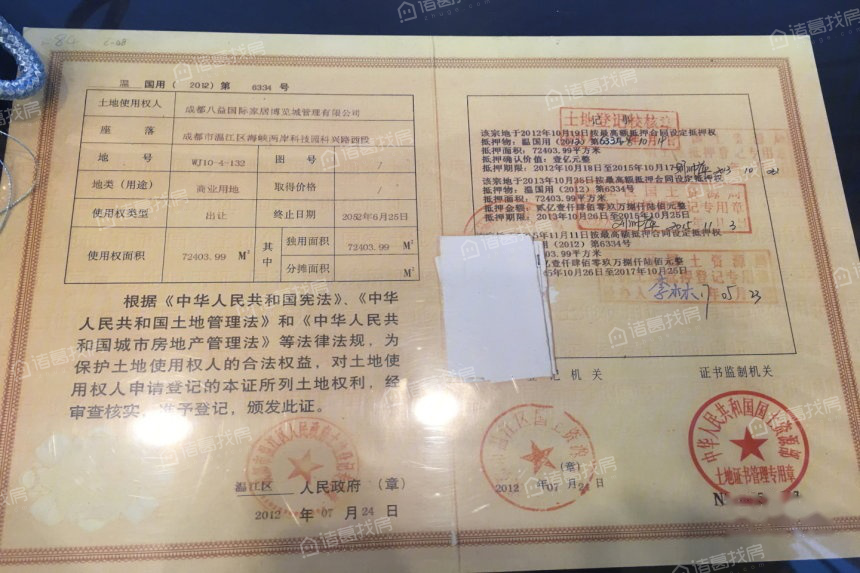 温 国用( 2012)第 6334 号
土地使用权人 成都八益国际家居博览城管理有限公司
座 落 成都市温江区海峡两岸科技园科兴路西段
地 号 WJ10-4-132 图 号 /
地类(用途) 商业用地 取得价格 /
使用权类型 出让 终止日期 2052年6月25日
使用权面积 72403.99 M² 其中 独用面积 72403.99 M²
分摊面积 M²
根据《中华人民共和国宪法》、《中华
人民共和国土地管理法》和《中华人民共
和国城市房地产管理法》等法律法规，为
保护土地使用权人的合法权益，对土地使
用权人申请登记的本证所列土地权利，经
审查核实，准予登记，颁发此证。
温江区 人民政府（章）
2012 年 07 月 24 日
记 事
该宗地于2012年10月19日按最高额抵押合同设定抵押权
抵押物：温国用(2012)第6334号
抵押面积：72403.99平方米
抵押确认价值：壹亿元整
抵押期限：2012年10月18日至2015年10月17日
2013 10 21
该宗地于2013年10月26日按最高额抵押合同设定抵押权
抵押物：温国用(2012)第6334号
抵押面积：72403.99平方米
抵押金额：贰亿壹仟肆佰零玖万捌仟陆佰元整
抵押期限：2013年10月26日至2015年10月25日
2015.11.3
年11月11日按最高额抵押合同设定抵押权
(2012)第6334号
03.99平方米
亿壹仟肆佰零玖万捌仟陆佰元整
年10月26日至2017年10月25日
05 23
登记机关 证书监制机关
(章)
2012 年 07 月 24 日
中华人民共和国国土资源部
土地证书管理专用章
土地登记校核
诸葛找房